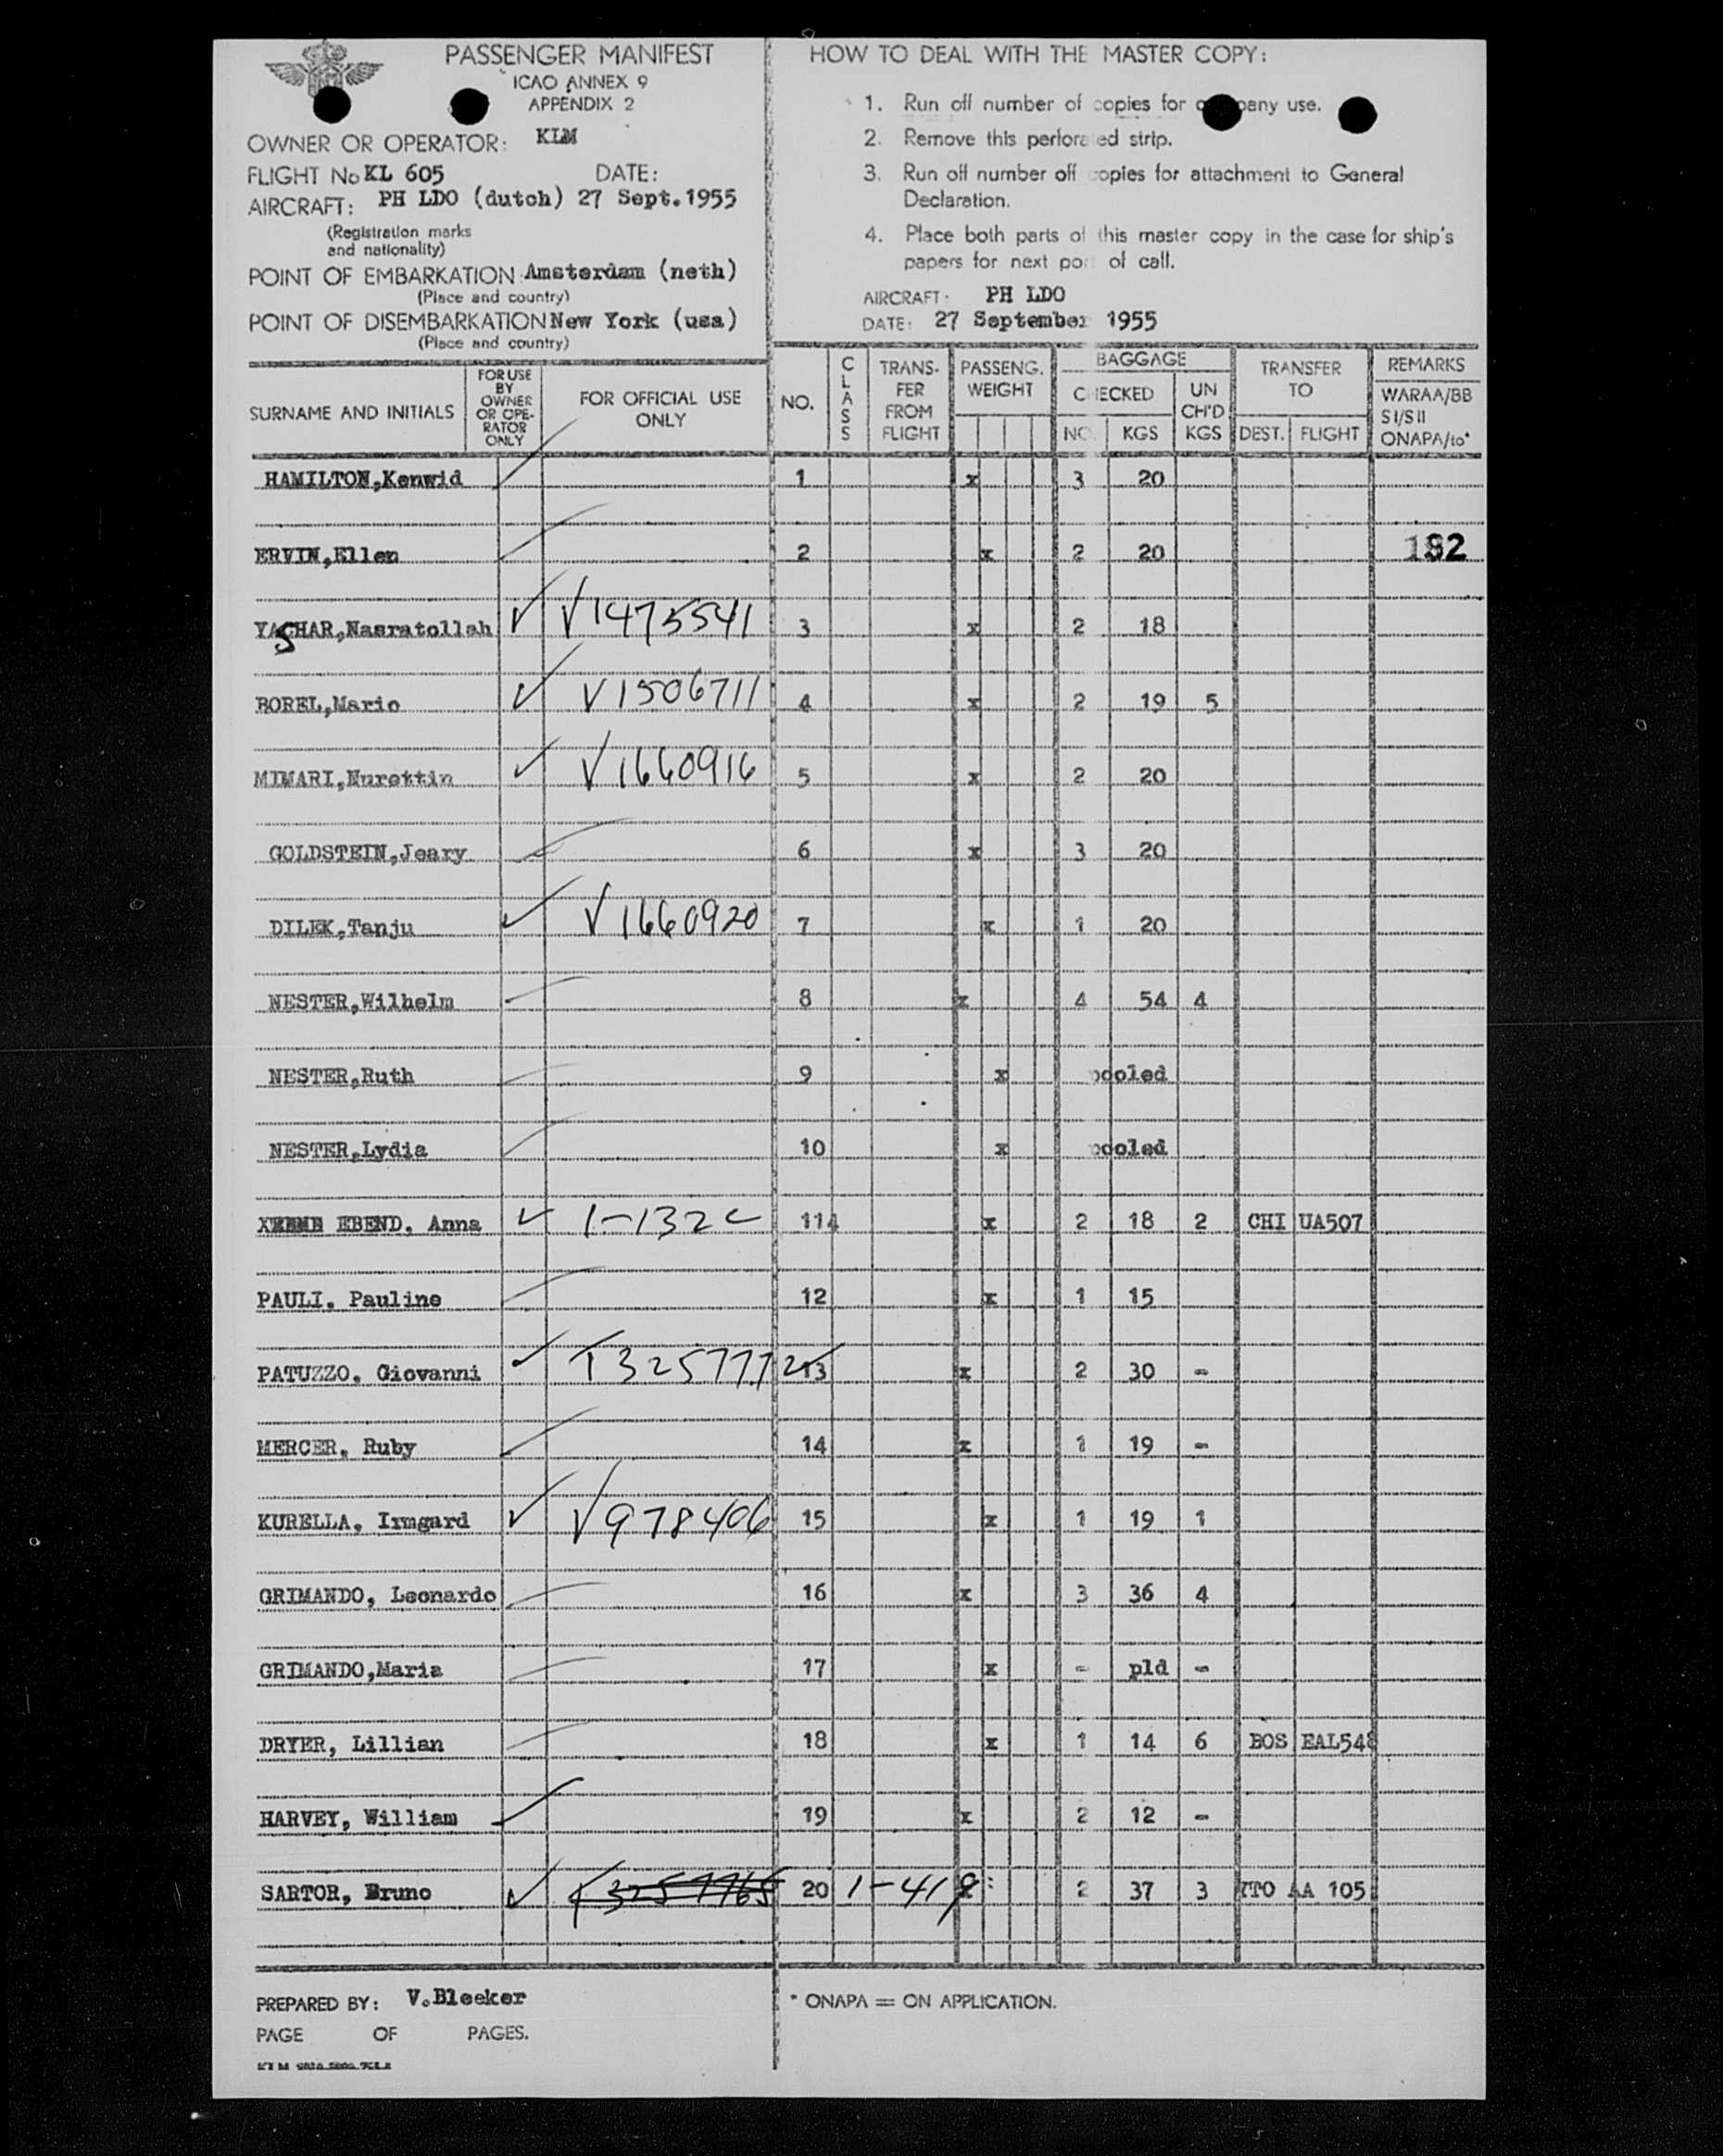 PASSENGER MANIFEST
ICAO ANNEX 9
APPENDIX 2
OWNER OR OPERATOR: KLM
FLIGHT No KL 605 DATE:
AIRCRAFT: PH LDO (dutch) 27 Sept.1955
(Registration marks
and nationality)
POINT OF EMBARKATION: Amsterdam (neth)
(Place and country)
POINT OF DISEMBARKATION New York (usa)
(Place and country)
HOW TO DEAL WITH THE MASTER COPY:
1. Run off number of copies for company use.
2. Remove this perforated strip.
3. Run off number off copies for attachment to General
Declaration.
4. Place both parts of this master copy in the case for ship's
papers for next port of call.
AIRCRAFT: PH LDO
DATE: 27 September 1955
SURNAME AND INITIALS
FOR USE BY OWNER OR OPE-RATOR ONLY
FOR OFFICIAL USE ONLY
NO.
CLASS
TRANS-FER FROM FLIGHT
PASSENG. WEIGHT
BAGGAGE
CHECKED
NO. KGS
UN CH'D KGS
TRANSFER TO
DEST. FLIGHT
REMARKS
WARAA/BB
SI/SII
ONAPA/to*
HAMILTON,Kenwid 1 x 3 20
ERVIN,Ellen 2 x 2 20 182
YASHAR,Nasratollah ✓ V1475541 3 x 2 18
BOREL,Mario ✓ V1506711 4 x 2 19 5
MIMARI,Nurettin ✓ V1660916 5 x 2 20
GOLDSTEIN,Jeary 6 x 3 20
DILEK,Tanju ✓ V1660920 7 x 1 20
NESTER,Wilhelm 8 x 4 54 4
NESTER,Ruth 9 x pooled
NESTER,Lydia 10 x pooled
EBEND, Anna ✓ 1-132 11 x 2 18 2 CHI UA507
PAULI, Pauline 12 x 1 15
PATUZZO, Giovanni ✓ T3257772 13 x 2 30 -
MERCER, Ruby 14 x 1 19 -
KURELLA, Irmgard ✓ V978406 15 x 1 19 1
GRIMANDO, Leonardo 16 x 3 36 4
GRIMANDO,Maria 17 x - pld -
DRYER, Lillian 18 x 1 14 6 BOS EAL548
HARVEY, William 19 x 2 12 -
SARTOR, Bruno ✓ T3257765 20 1-419 x 2 37 3 YTO AA 105
PREPARED BY: V.Bleeker
PAGE OF PAGES.
* ONAPA = ON APPLICATION.